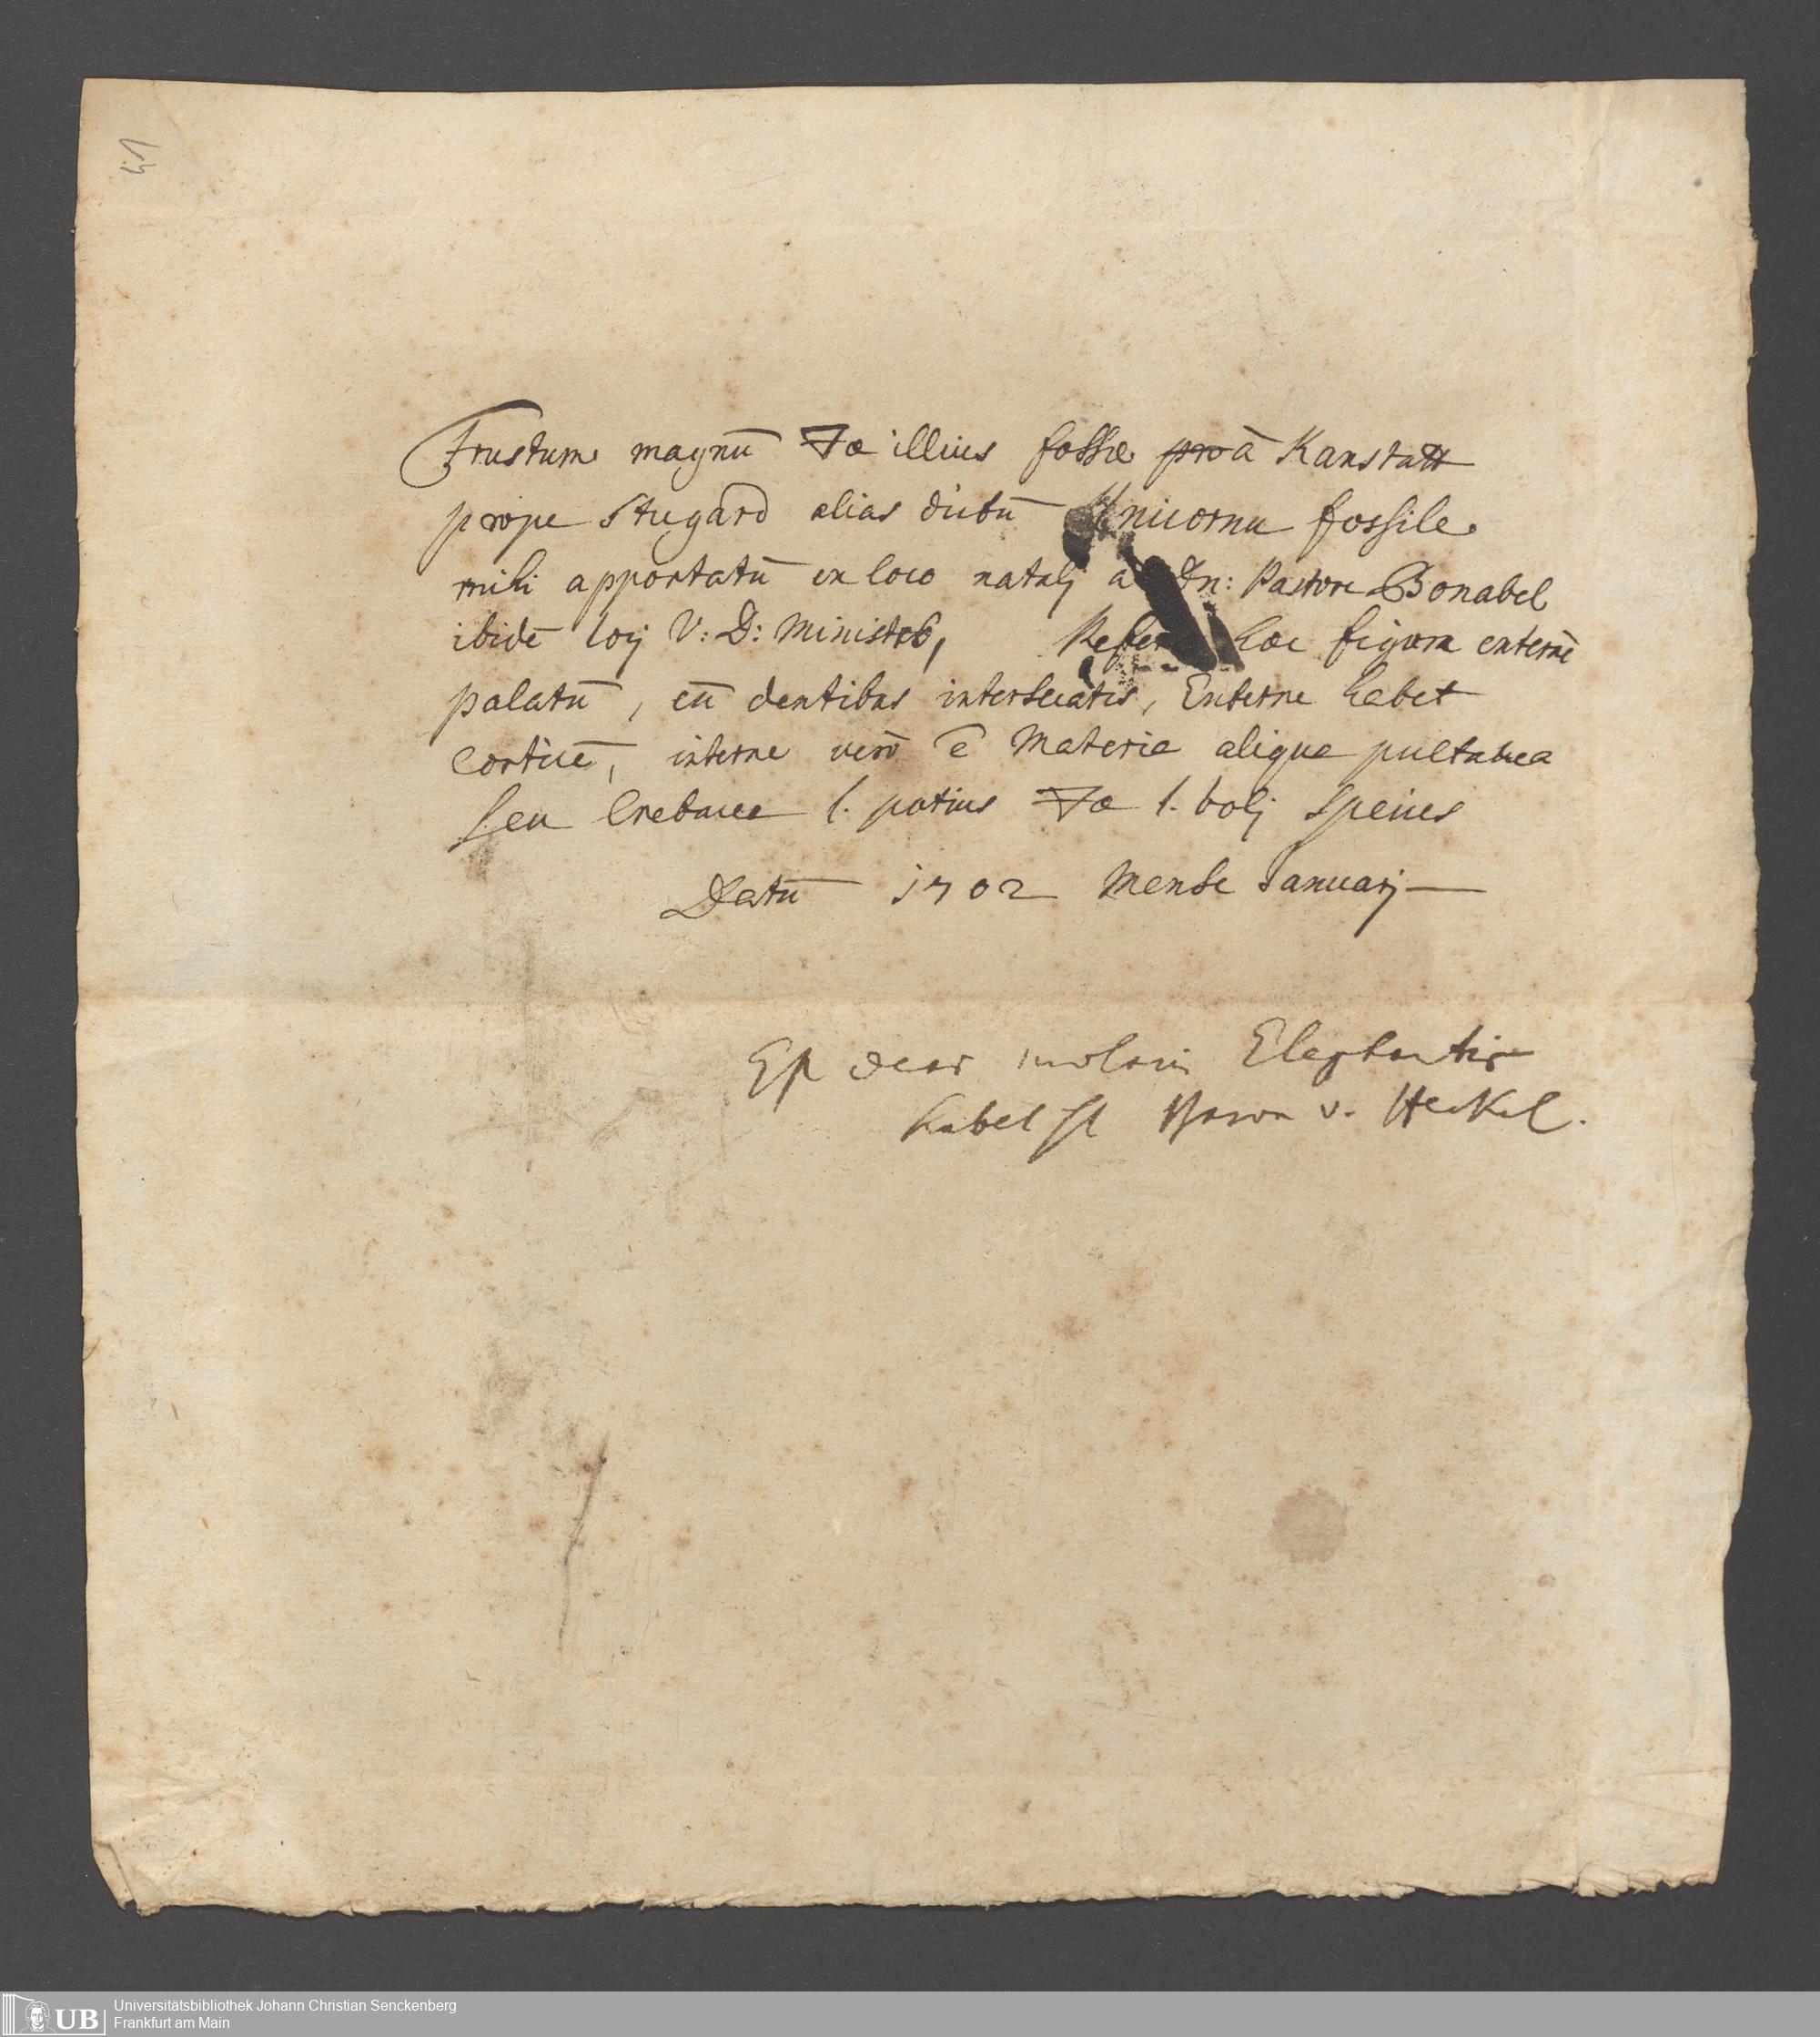 41
Frustum magnū 🜃æ illius fossæ pro à Kanstatt
prope Stugard alias dictū Unicornu fossile
mihi apportatū ex loco natalj a Dn: Pastore Bonabel
ibidē locj V: D: Ministro, Refert hæc figura externē
palatū, cū dentibus intersecatis, Externe habet
corticē, interne verō ē Materia aliqua pultacea
seu Cretacea s. potius 🜃æ s. bolj species
Datū 1702 Mense Januarj
Est dens molaris Elephantis
habet st Baron v. Heckel.
UB
Universitätsbibliothek Johann Christian Senckenberg
Frankfurt am Main